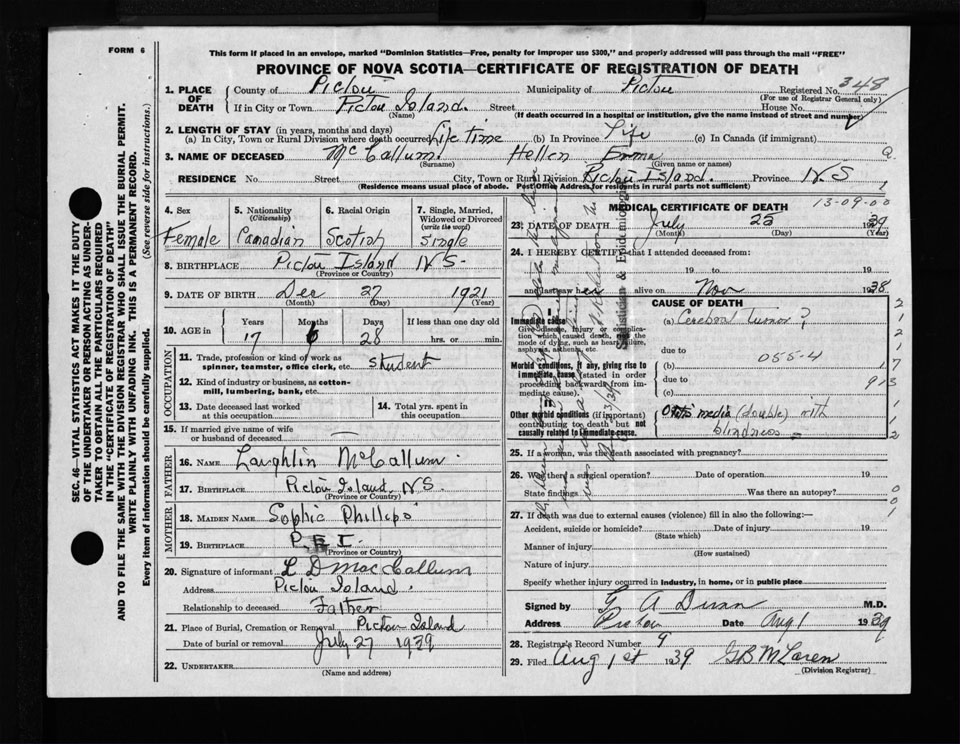 FORM 6
This form if placed in an envelope, marked "Dominion Statistics—Free, penalty for improper use $300," and properly addressed will pass through the mail "FREE"
PROVINCE OF NOVA SCOTIA—CERTIFICATE OF REGISTRATION OF DEATH
SEC. 46—VITAL STATISTICS ACT MAKES IT THE DUTY
OF THE UNDERTAKER OR PERSON ACTING AS UNDER-
TAKER TO OBTAIN ALL THE PARTICULARS REQUIRED
IN THE "CERTIFICATE OF REGISTRATION OF DEATH"
AND TO FILE THE SAME WITH THE DIVISION REGISTRAR WHO SHALL ISSUE THE BURIAL PERMIT.
WRITE PLAINLY WITH UNFADING INK. THIS IS A PERMANENT RECORD.
Every item of information should be carefully supplied. (See reverse side for instructions.)
1. PLACE OF DEATH County of Pictou Municipality of Pictou Registered No. 348
(For use of Registrar General only)
If in City or Town Pictou Island. Street House No.
(Name) (If death occurred in a hospital or institution, give its name instead of street and number)
2. LENGTH OF STAY (in years, months and days)
(a) In City, Town or Rural Division where death occurred Life time (b) In Province Life (c) In Canada (if immigrant)
3. NAME OF DECEASED McCallum. Hellen Emma
(Surname) (Given name or names)
RESIDENCE No. Street City, Town or Rural Division Pictou Island. Province N.S
(Residence means usual place of abode. Post Office Address for residents in rural parts not sufficient)
4. Sex Female
5. Nationality (Citizenship) Canadian
6. Racial Origin Scotish
7. Single, Married, Widowed or Divorced (write the word) Single
8. BIRTHPLACE Pictou Island N S-
(Province or Country)
9. DATE OF BIRTH Dec 27 1921
(Month) (Day) (Year)
10. AGE in Years Months Days If less than one day
17 6 28 hrs. or min.
OCCUPATION
11. Trade, profession or kind of work as spinner, teamster, office clerk, etc. student
12. Kind of industry or business, as cotton-mill, lumbering, bank, etc.
13. Date deceased last worked at this occupation
14. Total yrs. spent in this occupation
15. If married give name of wife or husband of deceased —
FATHER
16. Name Laughlin McCallum.
17. Birthplace Pictou Island, N.S.
(Province or Country)
MOTHER
18. Maiden Name Sophie Phillips
19. Birthplace P.E.I.
(Province or Country)
20. Signature of informant L D MacCallum
Address Pictou Island.
Relationship to deceased Father
21. Place of Burial, Cremation or Removal Pictou Island
Date of burial or removal July 27 1939
22. UNDERTAKER
(Name and address)
MEDICAL CERTIFICATE OF DEATH 13-09-00
23. DATE OF DEATH July 25 1939
(Month) (Day) (Year)
24. I HEREBY CERTIFY that I attended deceased from:
19 to 19
and last saw her alive on Nov 1938
CAUSE OF DEATH
Immediate cause
Give disease, injury or complication which caused death, not the mode of dying, such as heart failure, asphyxia, asthenia, etc.
(a) Cerebral tumor?
due to
Morbid conditions, if any, giving rise to immediate cause (stated in order proceeding backwards from immediate cause)
055-4
(b)
due to
(c)
Other morbid conditions (if important) contributing to death but not causally related to immediate cause.
Otitis media (double) with
blindness -
25. If a woman, was the death associated with pregnancy?
26. Was there a surgical operation? Date of operation 19
State findings Was there an autopsy?
27. If death was due to external causes (violence) fill in also the following:—
Accident, suicide or homicide? Date of injury 19
(State which)
Manner of injury
(How sustained)
Nature of injury
Specify whether injury occurred in industry, in home, or in public place
Signed by G A Dunn M.D.
Address Pictou Date Aug 1 1939
28. Registrar's Record Number 9
29. Filed Aug 1st 1939 GB McLaren
(Division Registrar)